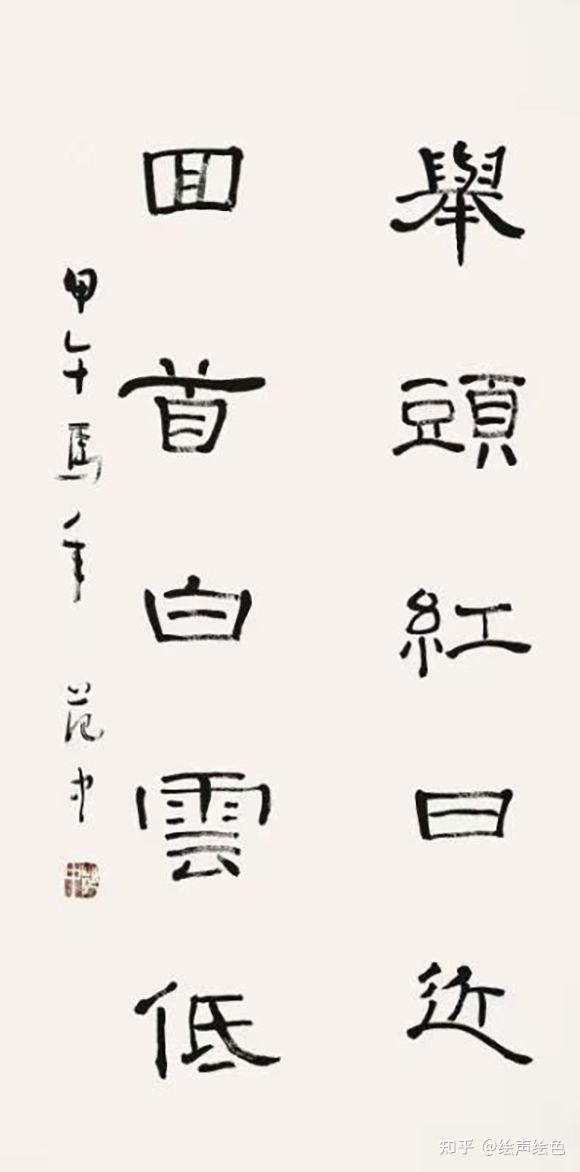 舉頭紅日近
回首白雲低
甲午馬年 范中
知乎 @绘声绘色